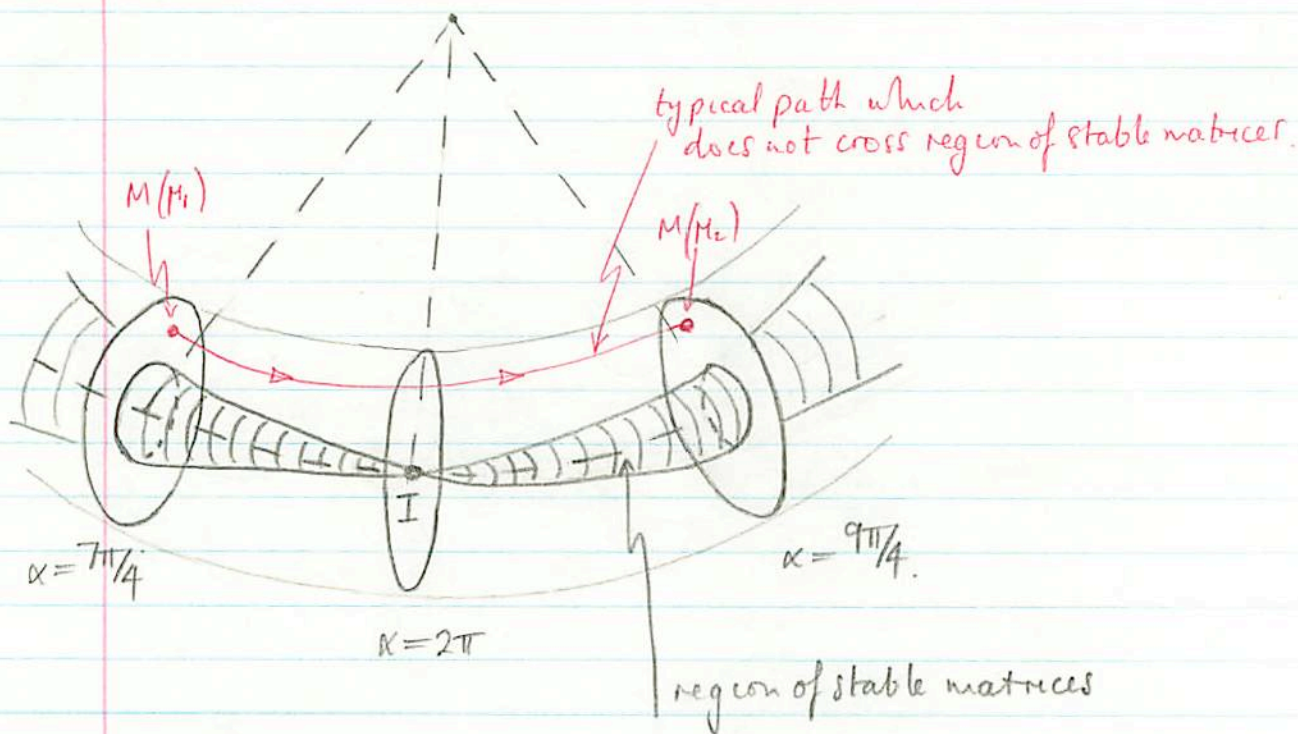 typical path which
does not cross region of stable matrices.
M(μ₁)
M(μ₂)
I
α = 7π/4
α = 9π/4.
α = 2π
region of stable matrices